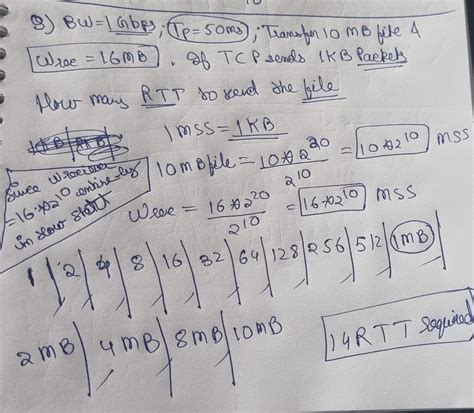 Q) BW=1Gbps, Tp=50ms, Transfer 10 MB file &
Wrec = 16MB. If TCP sends 1KB Packets
How many RTT to send the file
1 MSS = 1KB
10MB file = 10*2^20 / 2^10 = 10*2^10 MSS
Wrec = 16*2^20 / 2^10 = 16*2^10 MSS
Since
= 16*2^10 entirely
in slow start
1 | 2 | 4 | 8 | 16 | 32 | 64 | 128 | 256 | 512 | 1MB
2MB | 4MB | 8MB | 10MB
14RTT required